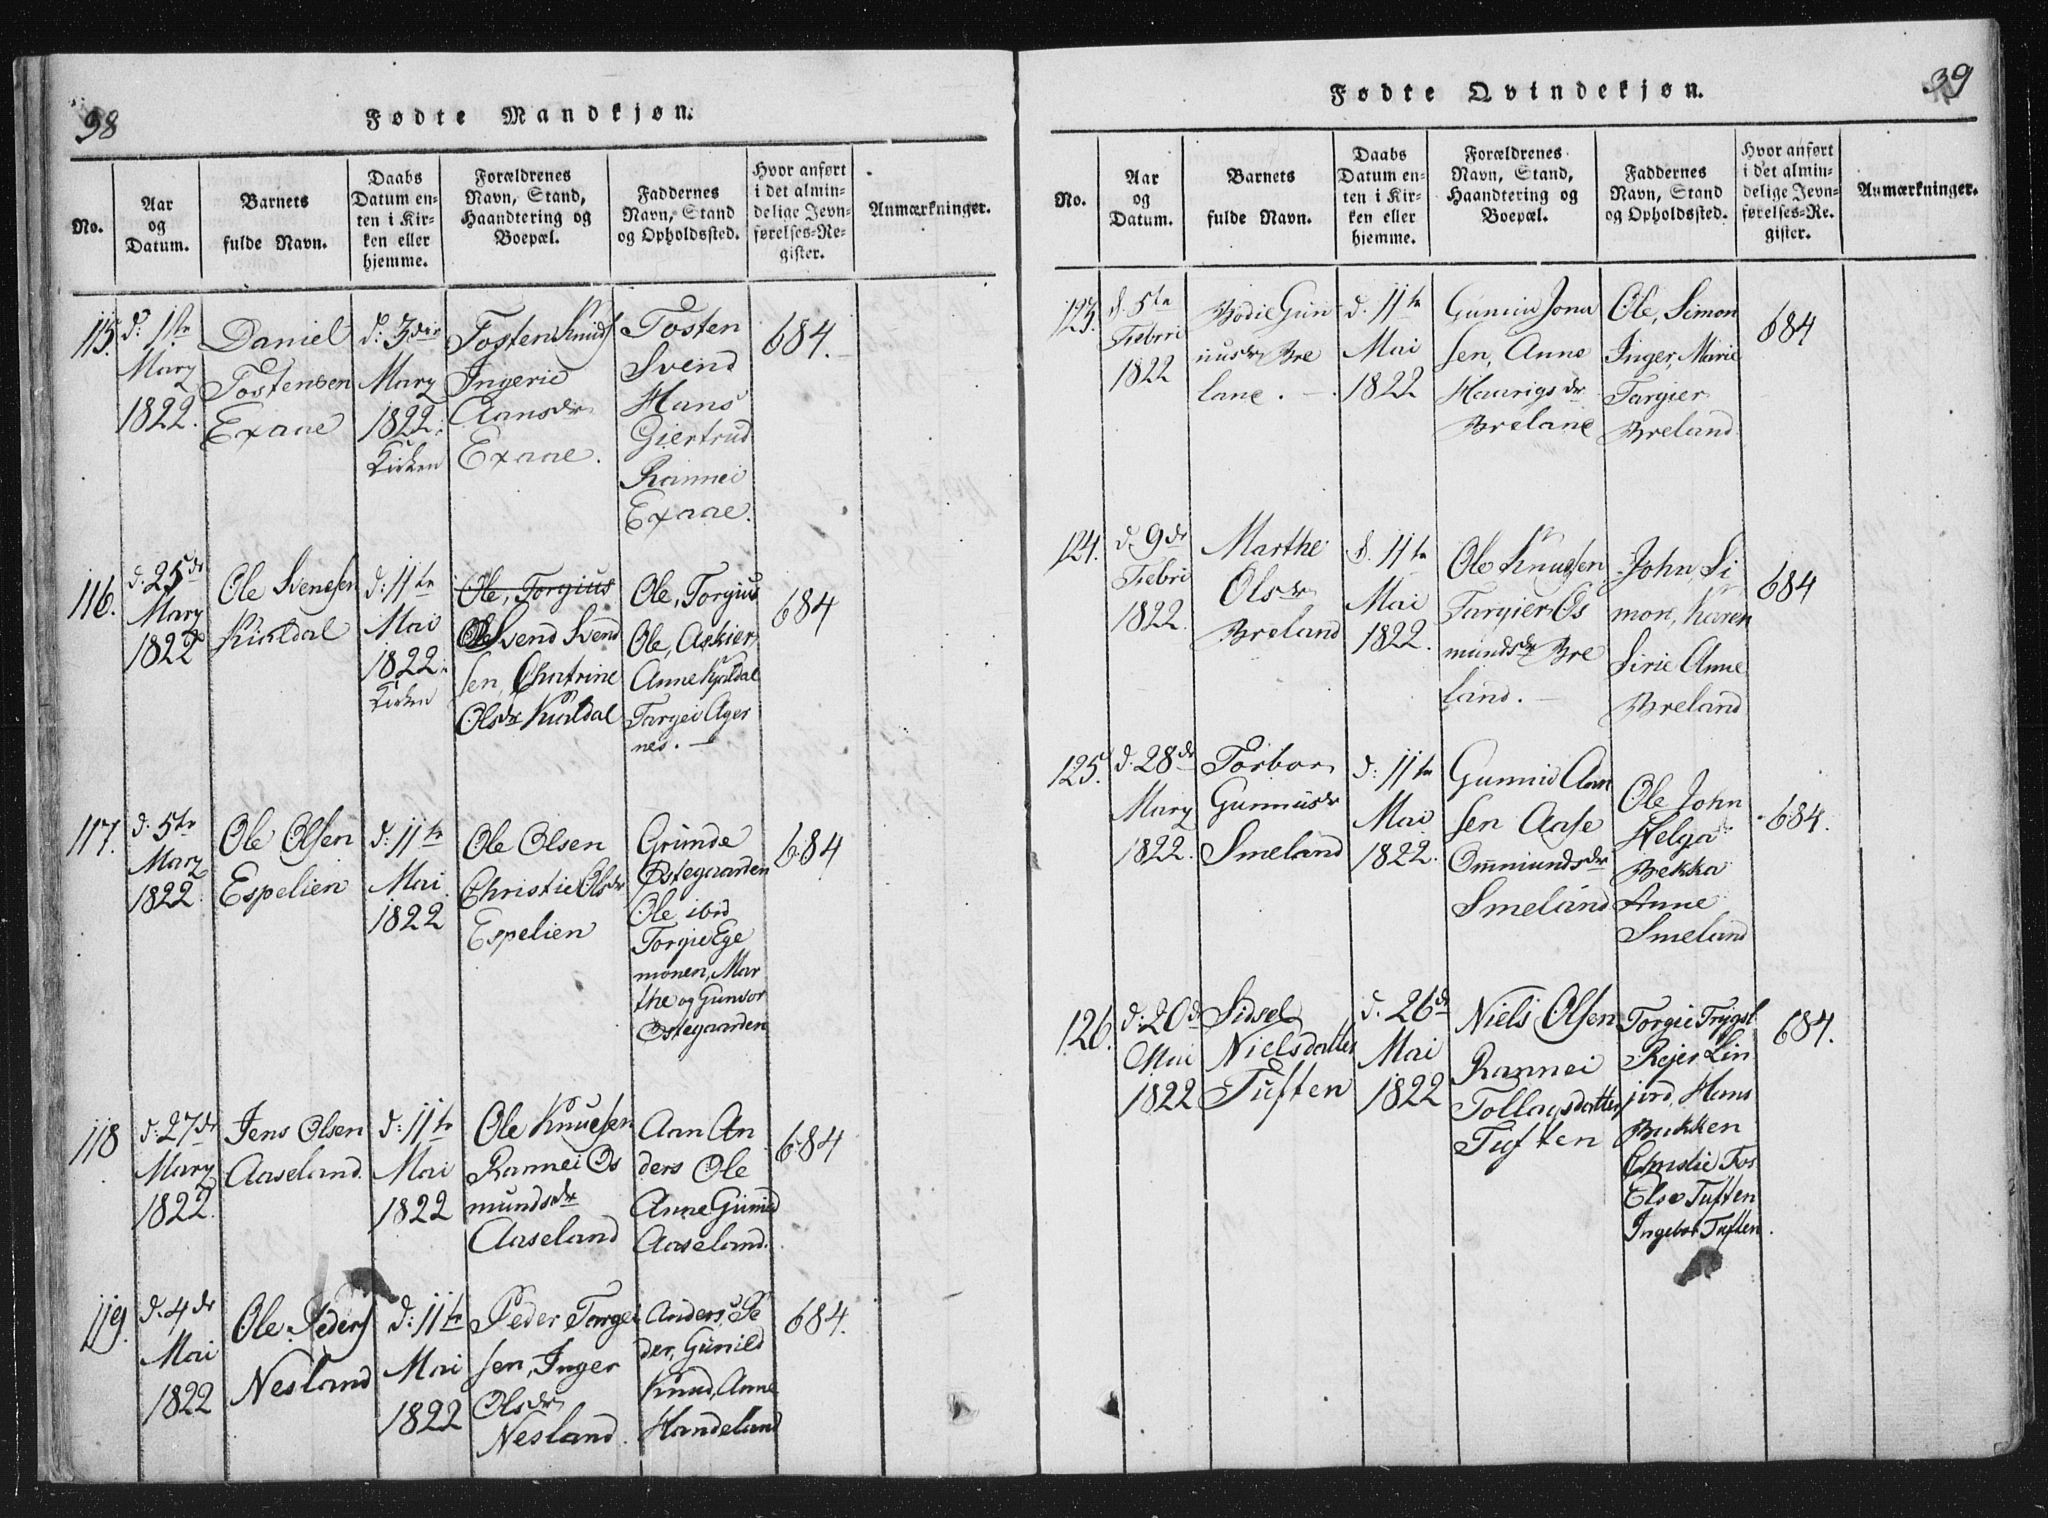 38
Fødte Mandkjøn.
No.
Aar
og
Datum.
Barnets
fulde Navn.
Daabs
Datum en-
ten i Kir-
ken eller
hjemme.
Forældrenes
Navn, Stand,
Haandtering og
Boepæl.
Faddernes
Navn, Stand
og Opholdssted.
Hvor anført
i det almin-
delige Jevn-
førelses-Re-
gister.
Anmærkninger.
115.
d: 1ste
Marz
1822.
Daniel
Tostensen
Exaae
d: 3die
Marz
1822.
Kirken
Tosten Knuds
Ingerie
Aansdr
Exaae.
Tosten
Svend
Hans
Giertrud
Rannei
Exaae.
684.
116.
d. 25de
Marz
1822
Ole Svensen
Kialdal
d: 11te
Mai
1822.
Kirken
Ole, Torgius
Svend Svend
sen, Chatrine
Olsdr Kialdal
Ole, Torgius
Ole, Askier,
Anne Kjaldal
Targei Ager
nes. —
684
117.
d. 5te
Marz
1822.
Ole Olsen
Espelien
d: 11te
Mai
1822
Ole Olsen
Christie Olsdr
Espelien
Grunde
Østegaarden
Ole ibid
Torgie Ege
monen, Mar
the og Gunvor
Østegaarden
684
118
d: 27de
Marz
1822.
Jens Olsen
Aaseland.
d: 11te
Mai
1822
Ole Knudsen
Rannei Os
mundsdr
Aaseland
Aan An
ders Ole
Anne Gunild
Aaseland.
684
119.
d. 4de
Mai
1822
Ole Peders
Nesland
d: 11te
Mai
1822
Peder Targei
sen, Inger
Olsdr
Nesland.
Anders, Pe
der, Gunild
Knud, Anne
Handeland
684.
39
Fødte Qvindekjøn.
No.
Aar
og
Datum.
Barnets
fulde Navn.
Daabs
Datum en-
ten i Kir-
ken eller
hjemme.
Forældrenes
Navn, Stand,
Haandtering og
Boepæl.
Faddernes
Navn, Stand
og Opholdssted.
Hvor anført
i det almin-
delige Jevn-
førelses-Re-
gister.
Anmærkninger.
123.
d. 5te
Febri
1822
Bodie Gun
nusdr Bre
lane. —
d. 11te
Mai
1822
Gunnu Jona
sen, Anne
Haurigsdr
Brelane
Ole, Simon
Inger, Marie
Targier
Breland
684
124.
d. 9de
Febri
1822.
Marthe
Olsdr
Breland
d. 11te
Mai
1822.
Ole Knudsen
Targier Os
mundsdr Bre
land. —
John, Si
mon, Karen
Sirie Anne
Breland
684
125.
d. 28de
Marz
1822.
Torbor
Gunnusdr
Smeland
d: 11te
Mai
1822.
Gunnu Aan
sen Aase
Ommundsdr
Smeland
Ole John
Helga
Bekka
Anne
Smeland
684.
126.
d: 20de
Mai
1822
Sidsel
Nielsdatter
Tuften
d. 26de
Mai
1822
Niels Olsen
Rannei
Tollagsdatter
Tuften
Torgie Trygst.
Rejer Lin
jord, Hans
Bukken
Christie Tor
Else Tuften
Ingebor Tuften.
684.